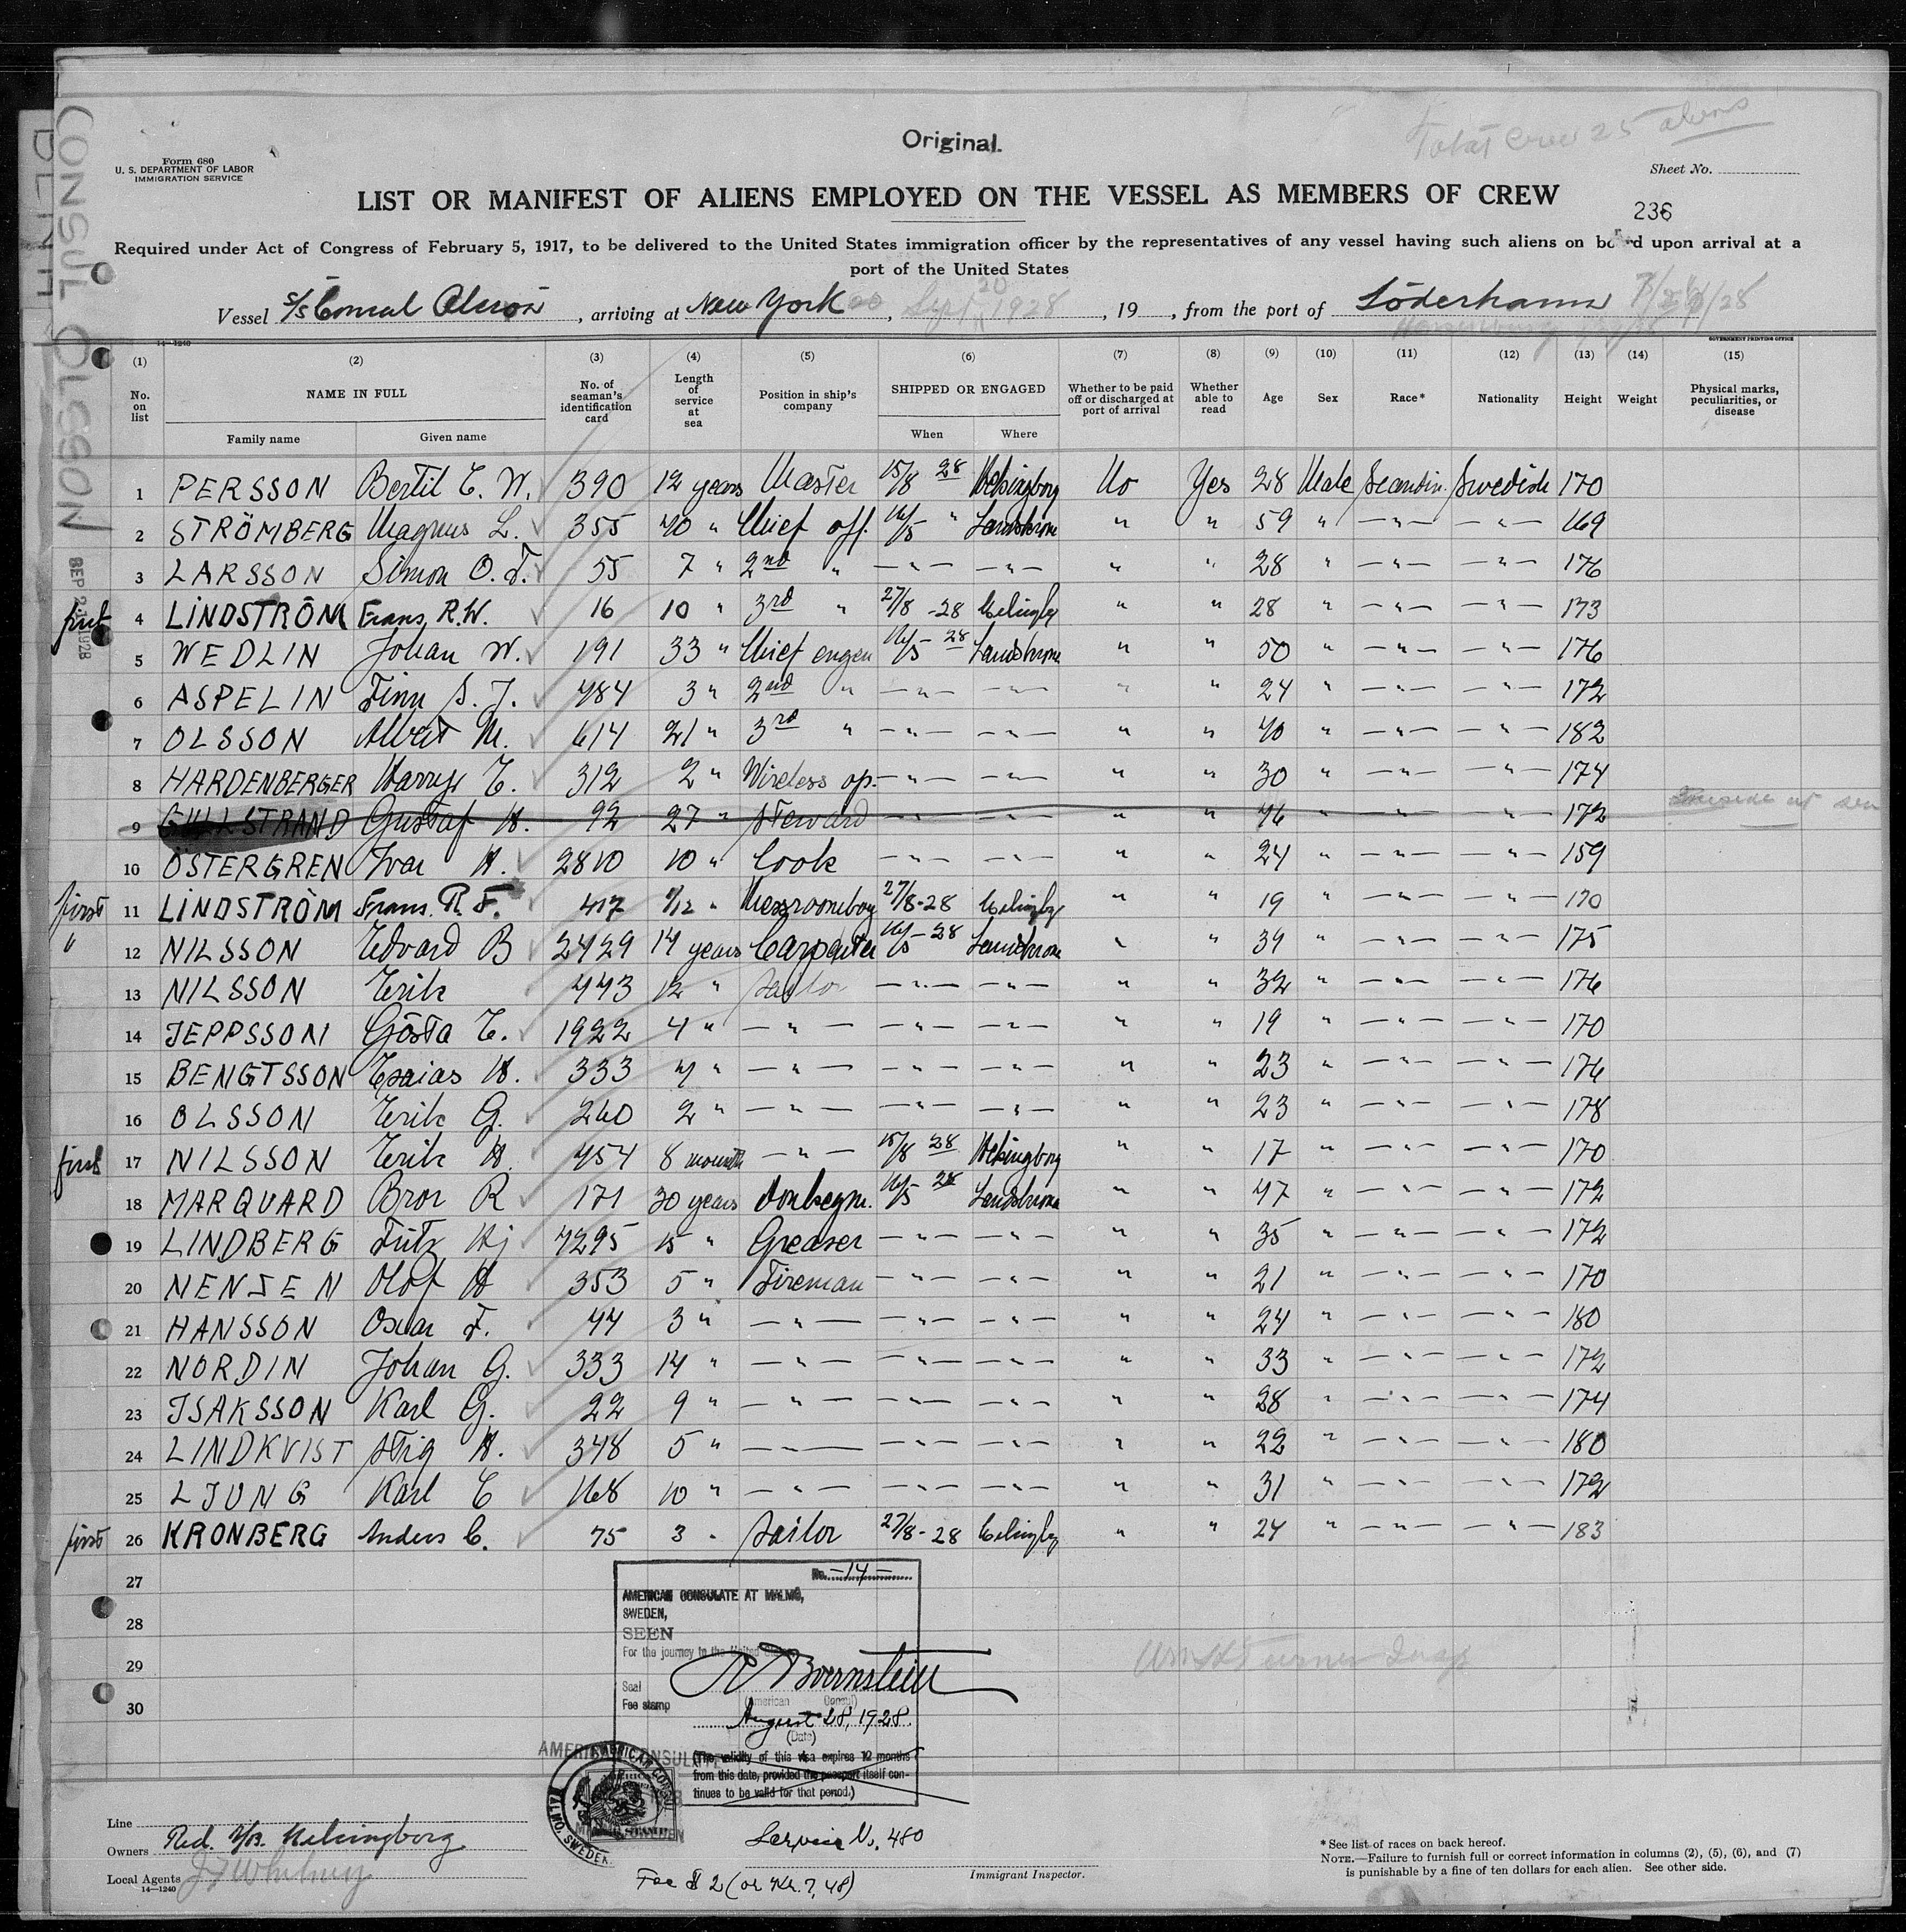 Original.
Total Crew 25 aliens
Form 680
U. S. DEPARTMENT OF LABOR
IMMIGRATION SERVICE
Sheet No.
LIST OR MANIFEST OF ALIENS EMPLOYED ON THE VESSEL AS MEMBERS OF CREW
236
Required under Act of Congress of February 5, 1917, to be delivered to the United States immigration officer by the representatives of any vessel having such aliens on board upon arrival at a
port of the United States
CONSUL OLSSON
SEP 21 1928
Vessel S/S Consul Olsson, arriving at New York, Sept 20 1928, 19, from the port of Söderhamn
14-1240
GOVERNMENT PRINTING OFFICE
(1) (2) (3) (4) (5) (6) (7) (8) (9) (10) (11) (12) (13) (14) (15)
No. on list NAME IN FULL No. of seaman's identification card Length of service at sea Position in ship's company SHIPPED OR ENGAGED Whether to be paid off or discharged at port of arrival Whether able to read Age Sex Race* Nationality Height Weight Physical marks, peculiarities, or disease
Family name Given name When Where
1 PERSSON Bertil E. W. 390 12 years Master 15/8 28 Helsingborg No Yes 28 Male Scandin. Swedish 170
2 STRÖMBERG Magnus L. 355 40 " Chief off. 16/5 " Landskrona " " 59 " — " — — " — 169
3 LARSSON Simon O. F. 55 7 " 2nd " — " — — " — " " 28 " — " — — " — 176
first 4 LINDSTRÖM Frans R.W. 16 10 " 3rd " 27/8 -28 Helsingbg " " 28 " — " — — " — 173
5 WEDLIN Johan W. 191 33 " Chief engen 16/5 - 28 Landskrona " " 50 " — " — — " — 176
6 ASPELIN Finn S. J. 484 3 " 2nd " — " — — " — " " 24 " — " — — " — 172
7 OLSSON Albert M. 614 21 " 3rd " — " — — " — " " 40 " — " — — " — 182
8 HARDENBERGER Harry E. 312 2 " Wireless op. — " — — " — " " 30 " — " — — " — 174
9 GULLSTRAND Gustaf H. 92 27 " Steward — " — — " — " " 46 " — " — — " — 172
10 ÖSTERGREN Ivar H. 2810 10 " Cook — " — — " — " " 24 " — " — — " — 159
first 11 LINDSTRÖM Frans. R. F. 417 7/12 " Messroomboy 27/8-28 Helsingbg " " 19 " — " — — " — 170
" 12 NILSSON Edvard B 2429 14 years Carpenter 16/5 - 28 Landskrona " " 39 " — " — — " — 175
13 NILSSON Erik 443 12 " Sailor — " — — " — " " 32 " — " — — " — 176
14 JEPPSSON Gösta E. 1922 4 " — " — — " — — " — " " 19 " — " — — " — 170
15 BENGTSSON Esaias H. 333 4 " — " — — " — — " — " " 23 " — " — — " — 176
16 OLSSON Erik G. 260 2 " — " — — " — — " — " " 23 " — " — — " — 178
first 17 NILSSON Erik H. 454 8 month — " — 15/8 28 Helsingborg " " 17 " — " — — " — 170
18 MARQUARD Bror R 171 30 years Donkeym. 16/5 28 Landskrona " " 47 " — " — — " — 172
19 LINDBERG Fritz Hj 4295 15 " Greaser — " — — " — " " 35 " — " — — " — 172
20 NENSEN Olof H 353 5 " Fireman — " — — " — " " 21 " — " — — " — 170
21 HANSSON Oscar F. 44 3 " — " — — " — — " — " " 24 " — " — — " — 180
22 NORDIN Johan G. 333 14 " — " — — " — — " — " " 33 " — " — — " — 172
23 ISAKSSON Karl G. 22 9 " — " — — " — — " — " " 28 " — " — — " — 174
24 LINDKVIST Stig H. 348 5 " — " — — " — — " — " " 22 " — " — — " — 180
25 LJUNG Karl E 168 10 " — " — — " — — " — " " 31 " — " — — " — 172
first 26 KRONBERG Anders C. 75 3 " Sailor 27/8-28 Helsingbg " " 24 " — " — — " — 183
27
28
29
30
No. -14-
AMERICAN CONSULATE AT MALMÖ,
SWEDEN,
SEEN
For the journey to the United States
Seal
Fee stamp
(American Consul)
August 28, 1928.
(Date)
(The validity of this visa expires 12 months
from this date, provided the passport itself con-
tinues to be valid for that period.)
AMERICAN CONSULATE
MALMO, SWEDEN
Line
Owners Red. A/B. Helsingborg
Local Agents
14-1240
Service No. 480
Fee $ 2 (or Kr. 7,48)
Immigrant Inspector.
* See list of races on back hereof.
NOTE.—Failure to furnish full or correct information in columns (2), (5), (6), and (7)
is punishable by a fine of ten dollars for each alien. See other side.